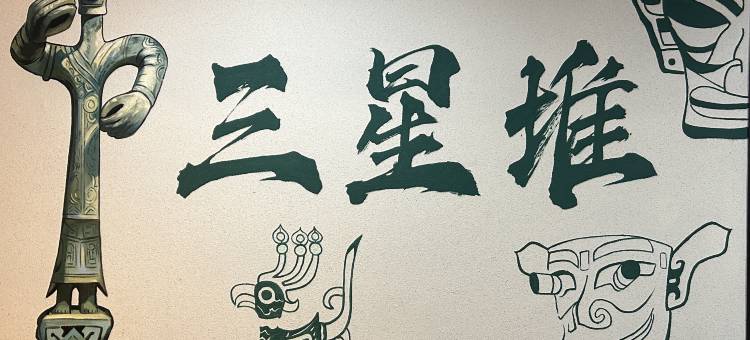 三星堆